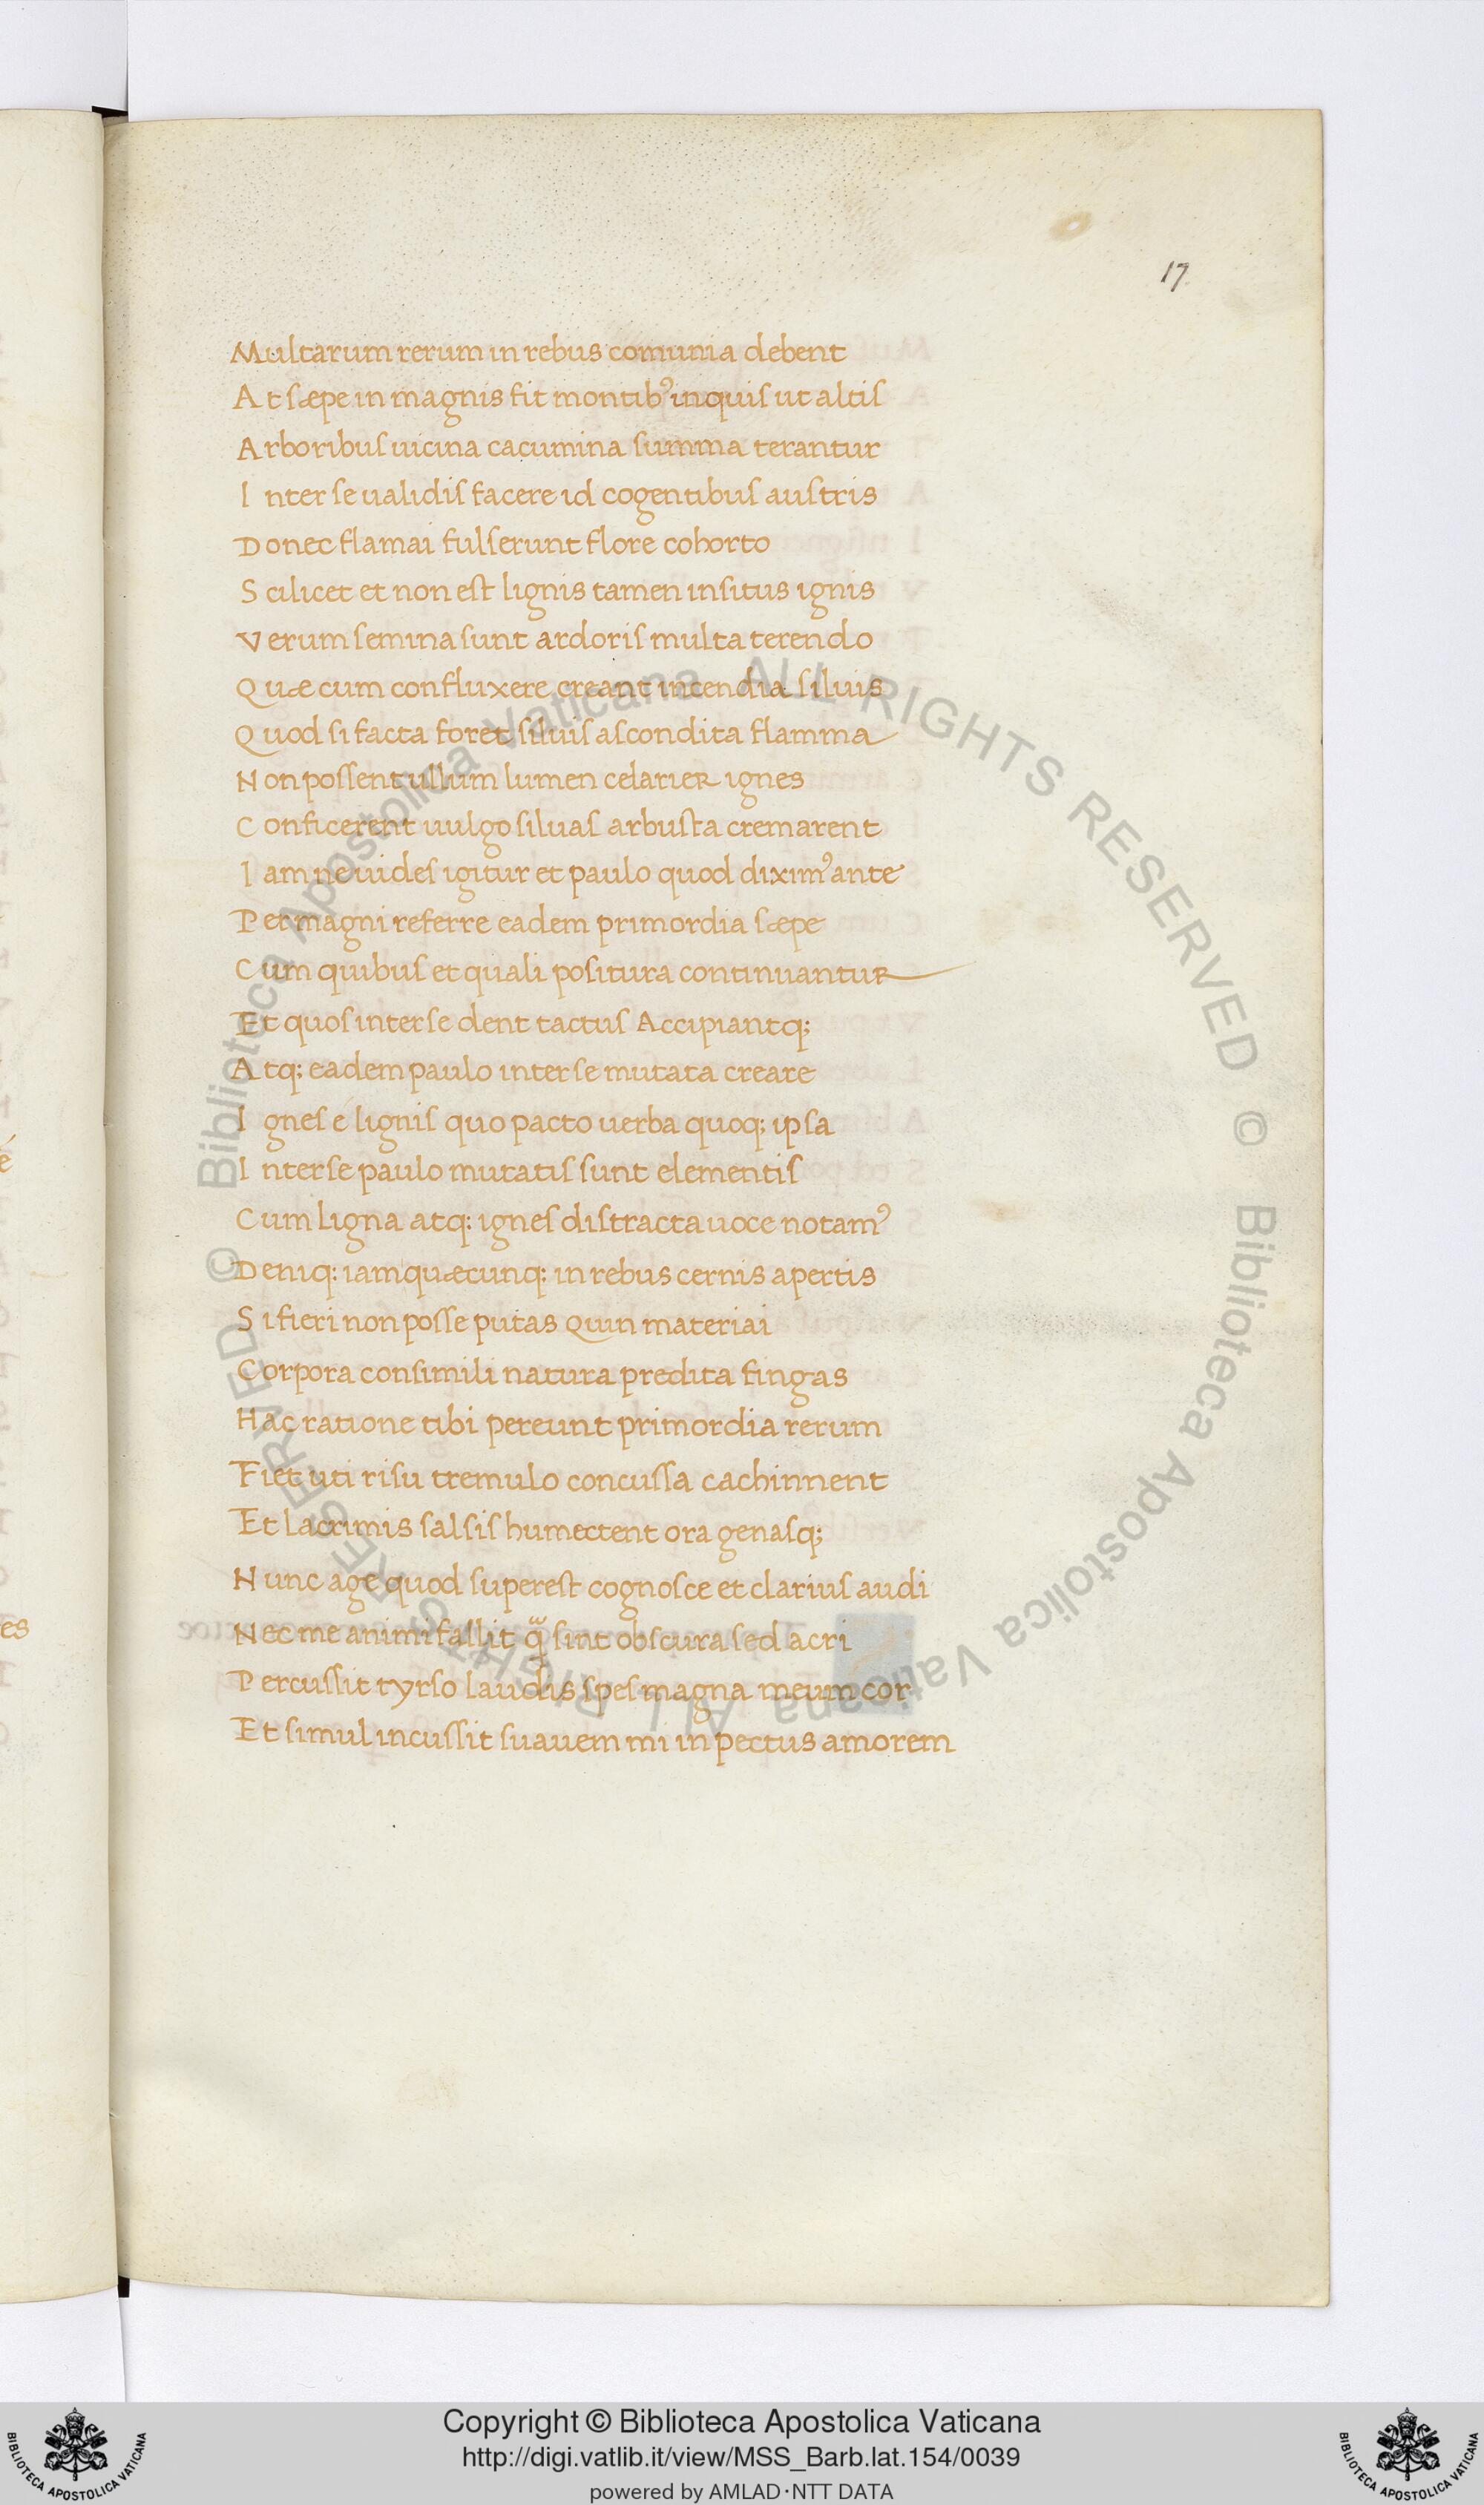 17
Multarum rerum in rebus comunia debent
At sæpe in magnis fit montibꝰ inquis ut altis
Arboribus uicina cacumina summa terantur
Inter se ualidis facere id cogentibus austris
Donec flamai fulserunt flore cohorto
Scilicet et non est lignis tamen insitus ignis
Verum semina sunt ardoris multa terendo
Quæ cum confluxere creant incendia siluis
Quod si facta foret siluis ascondita flamma
Non possent ullum lumen celarier ignes
Conficerent uulgo siluas arbusta cremarent
Iamne uides igitur et paulo quod diximꝰ ante
Per magni referre eadem primordia sæpe
Cum quibus et quali positura continuantur
Et quos inter se dent tactus Accipiantq;
Atq; eadem paulo inter se mutata creare
Ignes é lignis quo pacto uerba quoq; ipsa
Inter se paulo mutatis sunt elementis
Cum ligna atq: ignes distracta uoce notamꝰ
Deniq: iam quæcunq: in rebus cernis apertis
Si fieri non posse putas quin materiai
Corpora consimili natura predita fingas
Hac ratione tibi pereunt primordia rerum
Fiet uti risu tremulo concussa cachinnent
Et lacrimis salsis humectent ora genasq;
Nunc age quod superest cognosce et clarius audi
Nec me animi fallit qᷓ sint obscura sed acri
Percussit tyrso laudis spes magna meum cor
Et simul incussit suauem mi in pectus amorem
é
es
© Biblioteca Apostolica Vaticana ALL RIGHTS RESERVED © Biblioteca Apostolica Vaticana ALL RIGHTS RESERVED
Copyright © Biblioteca Apostolica Vaticana
http://digi.vatlib.it/view/MSS_Barb.lat.154/0039
powered by AMLAD·NTT DATA
BIBLIOTECA APOSTOLICA VATICANA
BIBLIOTECA APOSTOLICA VATICANA